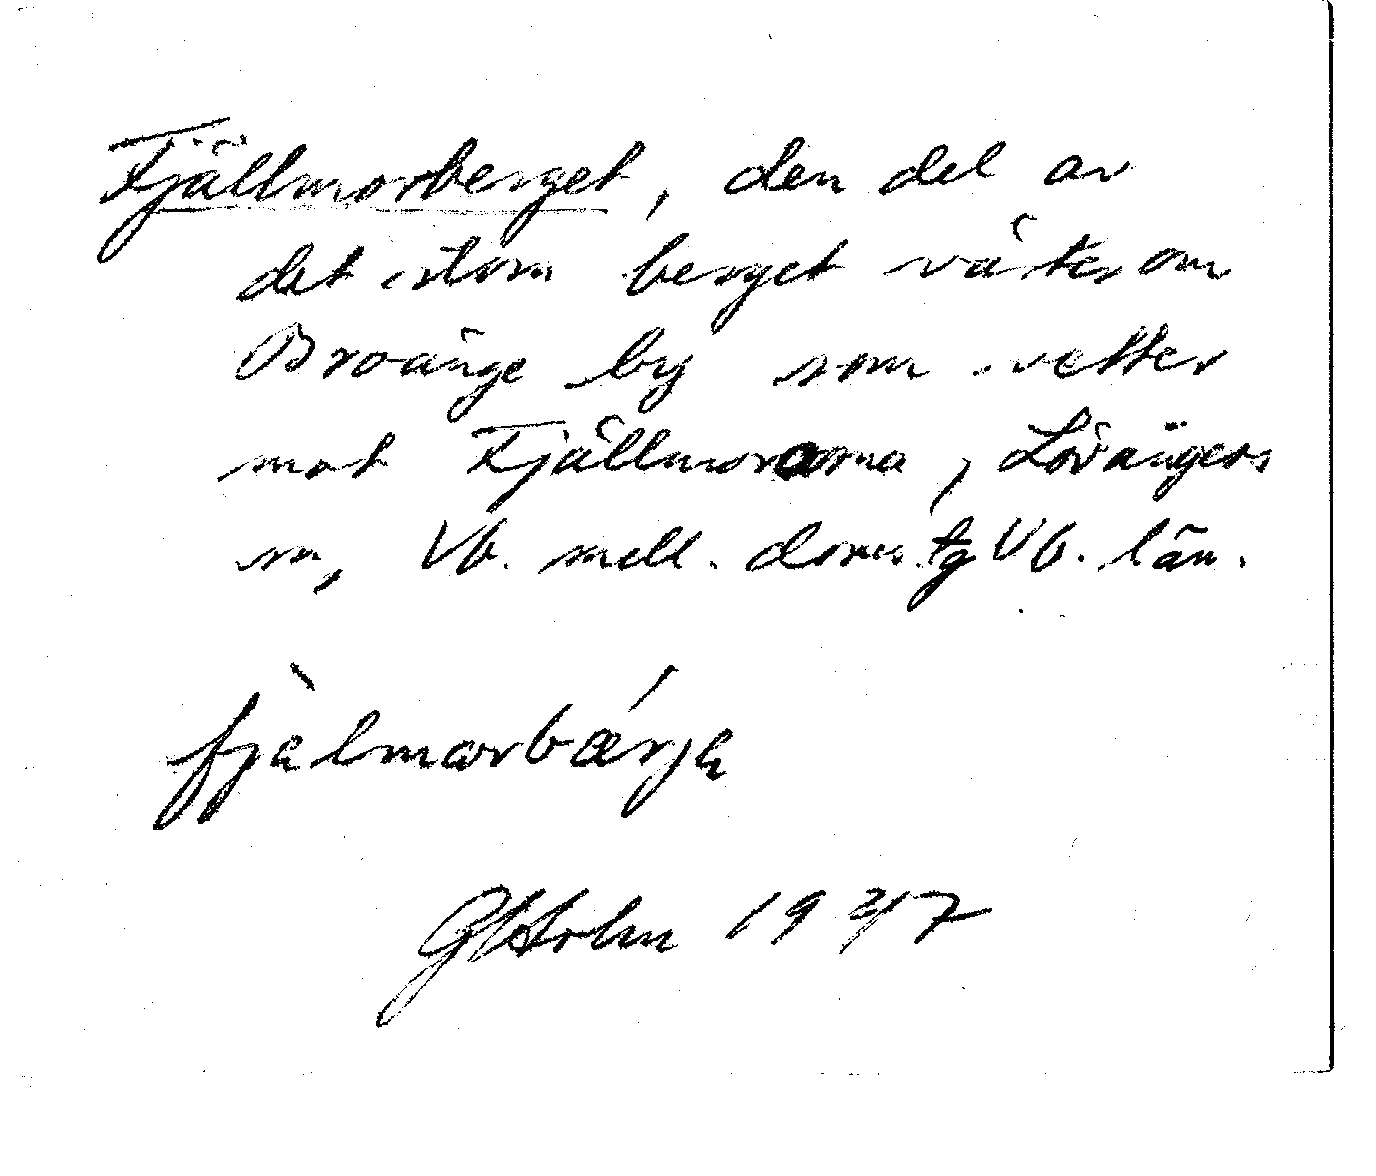 Fjällmorberget, den del av
det stora berget väster om
Broänge by som vetter
mot Fjällmorarna, Lövångers
sn, Vb. mell. doms.tg Vb. län.
fjälmorbǽrjɐ
GHolm 1947